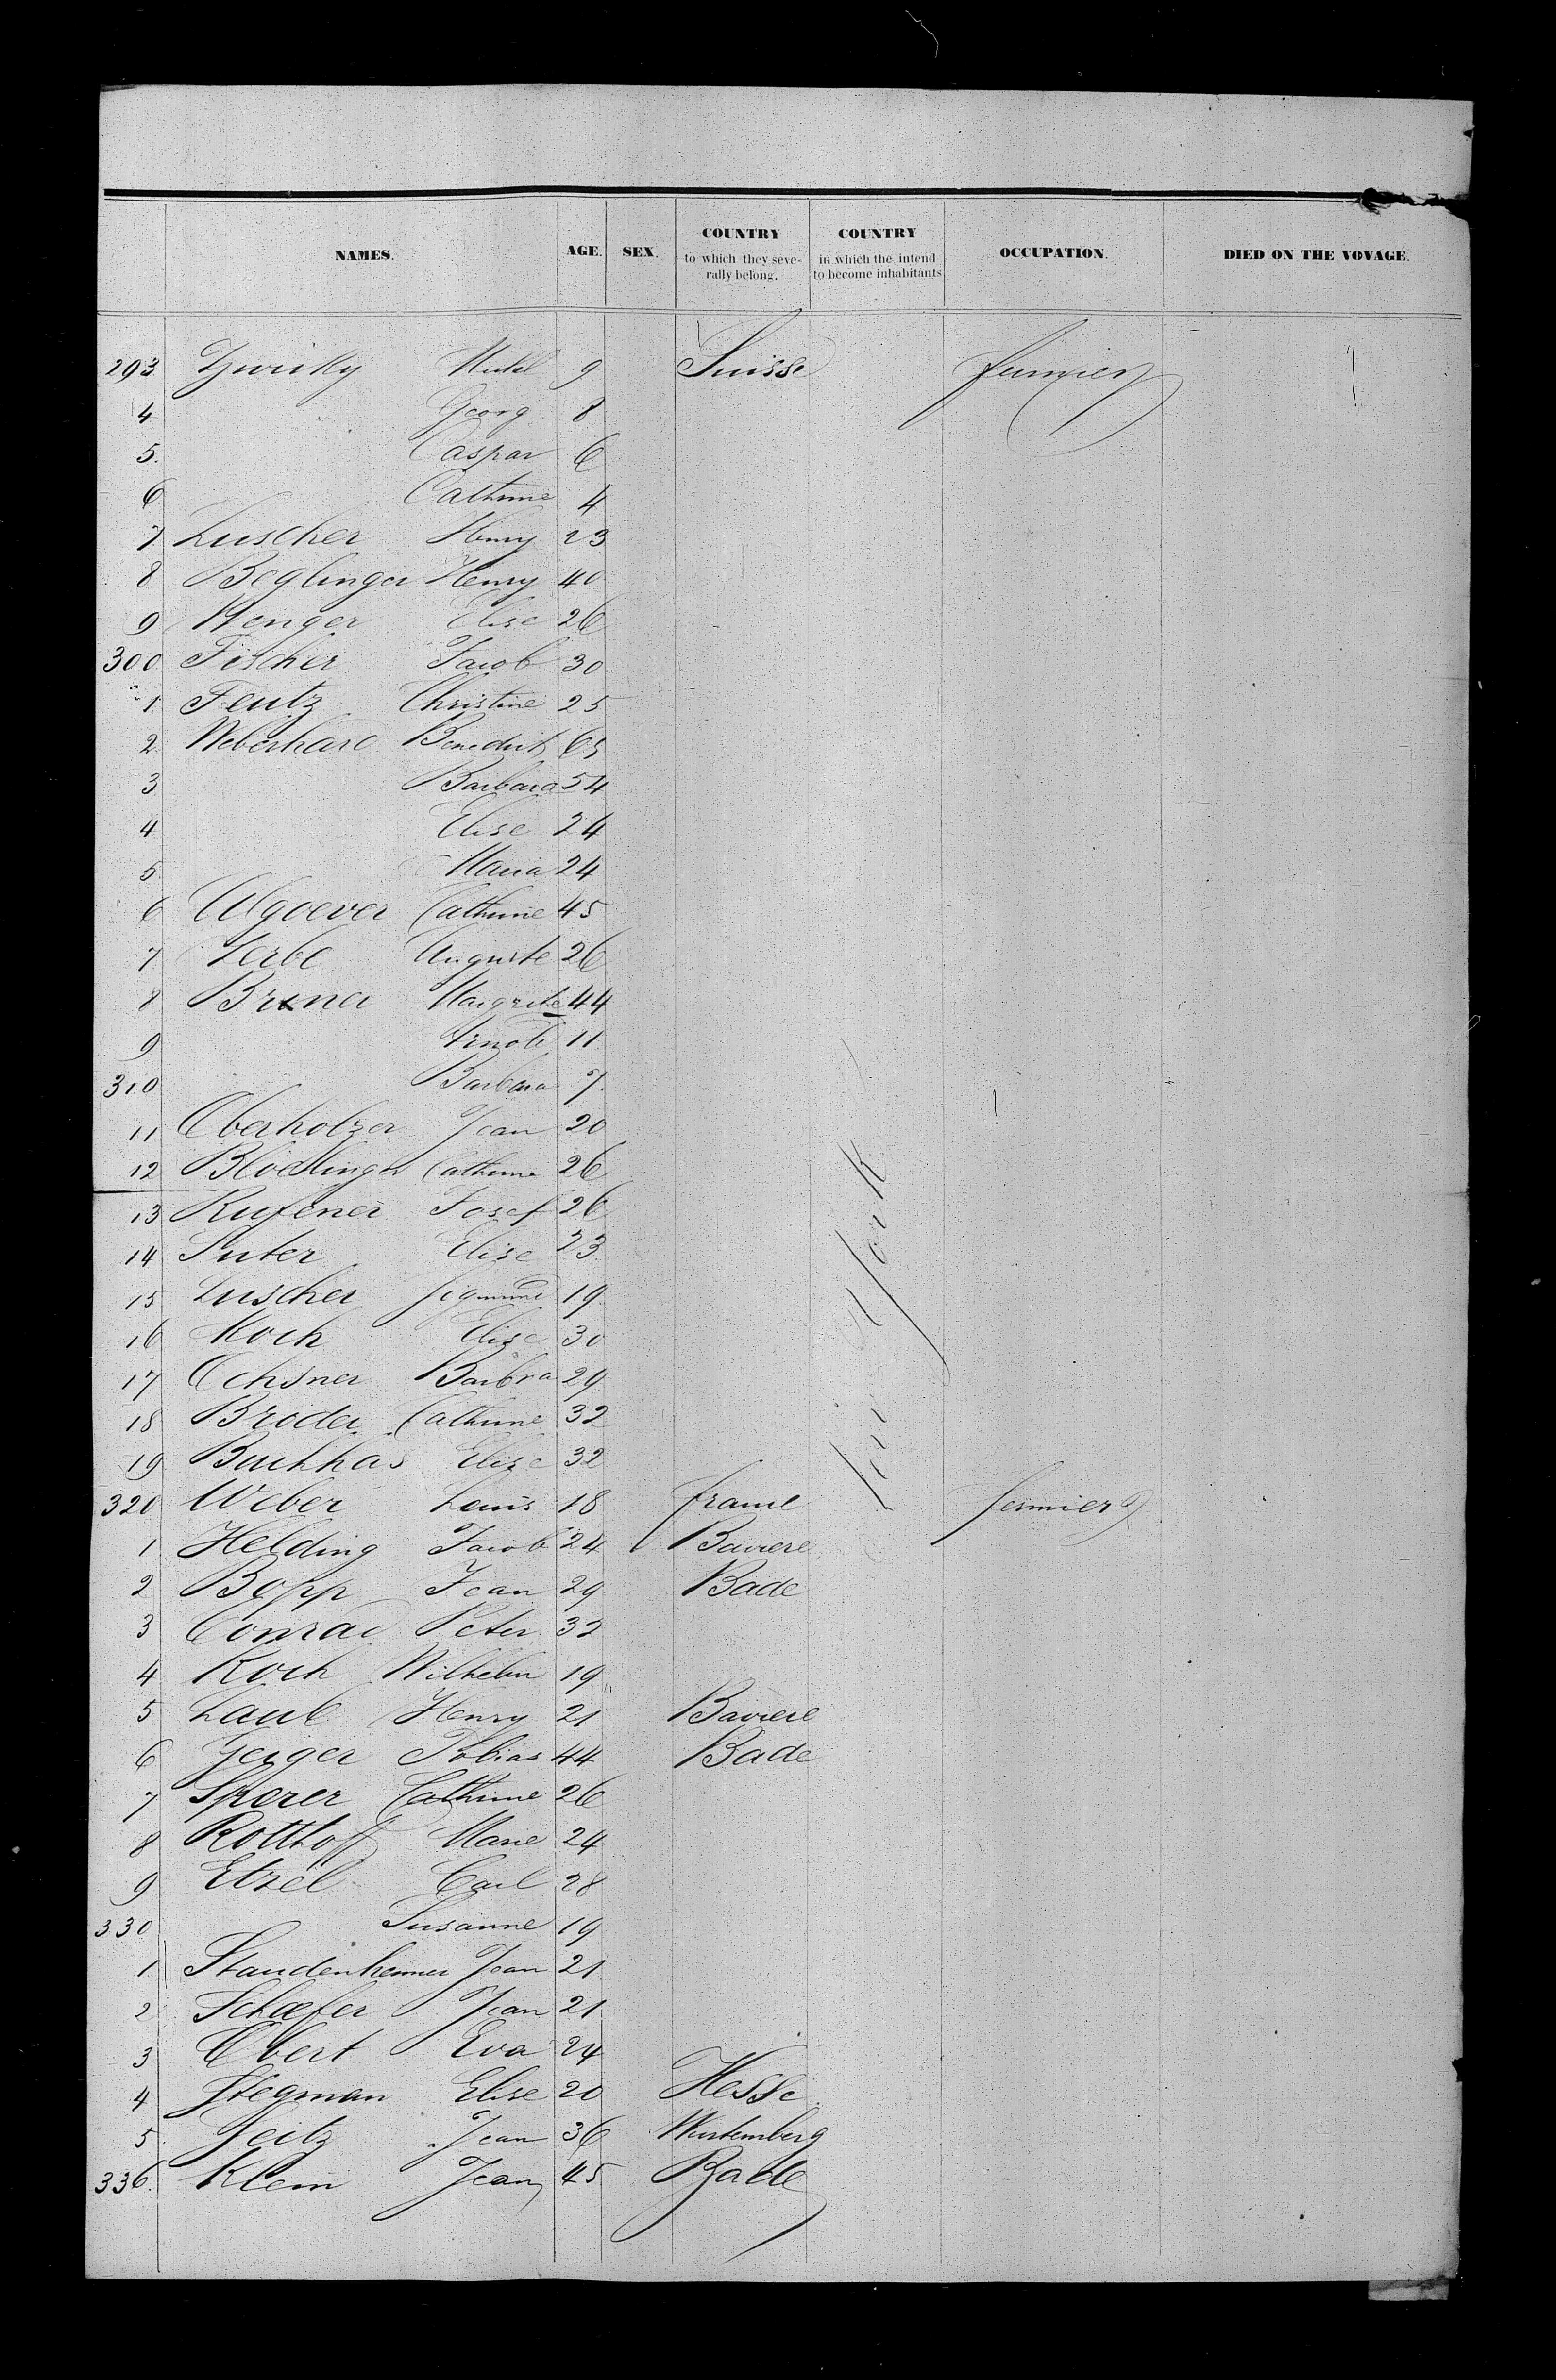 NAMES. AGE. SEX. COUNTRY to which they seve- rally belong. COUNTRY in which the intend to become inhabitants OCCUPATION. DIED ON THE VOVAGE.
293 Zwicky 9 Suisse fermier
4 Georg 8
5. Caspar 6
6 Cathrine 4
7 Luscher Henry 23
8 Beglinger Henry 40
9 Wenger Elise 26
300 Fischer Jacob 30
1 Feutz Christine 25
2 Weberhard Benedict 65
3 Barbara 54
4 Elise 24
5 Maria 24
6 Cathrine 45
7 Zerbe Auguste 26
8 Margrite 44
9 11
310 Barbara 7
11 Oberholzer Jean 20
12 Blöchlinger Cathrine 26
13 Rufener Josef 26
14 Suter Elise 23
15 Luscher Sigmund 19
16 Koch Elise 30
17 Ochsner Barbra 29
18 Broder Cathrine 32
19 Elise 32
320 Weber Louis 18 france fermier
1 Helding Jacob 24 Baviere
2 Bopp Jean 29 Bade
3 Conrad Peter 32
4 Koch Wilhelm 19
5 Laub Henry 21 Baviere
6 Geiger Tobias 44 Bade
7 Sperer Cathrine 26
8 Rotthoff Marie 24
9 Etzel Carl 28
330 Susanne 19
1 Jean 21
2 Schæfer Jean 21
3 Obert Eva 24
4 Stegman Elise 20 Hesse
5 Seitz Jean 36 Wurtemberg
336. Klein Jean 45 Bade
York